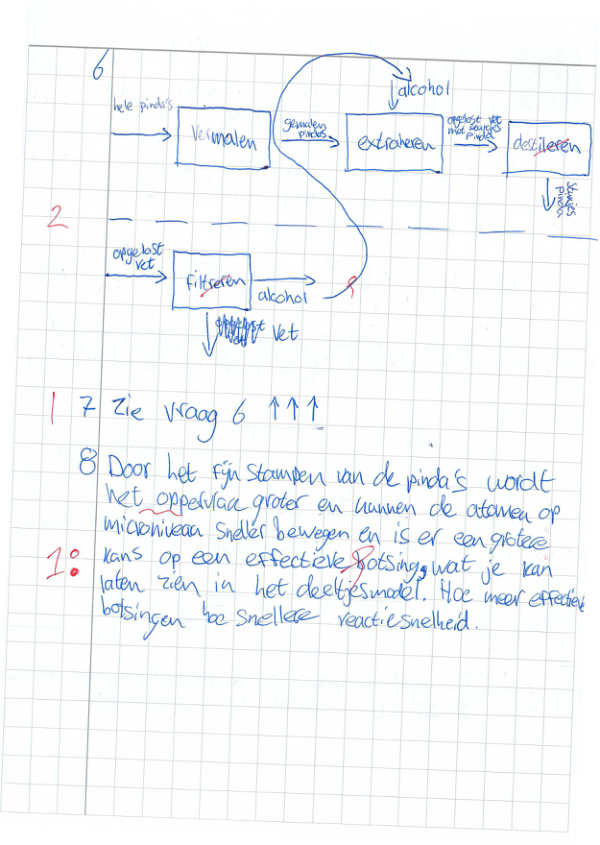 6
alcohol
hele pinda's
vermalen
gemalen pindas
extraheren
opgelost vet met
pinda
destileren
2
opgelost vet
filtreren
alcohol
vet
1 7 Zie vraag 6 ↑↑↑
8 Door het fijn stampen van de pinda's wordt
het oppervlak groter en kunnen de atomen op
microniveau sneller bewegen en is er een grotere
1: kans op een effectieve botsing, wat je kan
laten zien in het deeltjesmodel. Hoe meer effectieve
botsingen hoe snellere reactiesnelheid.